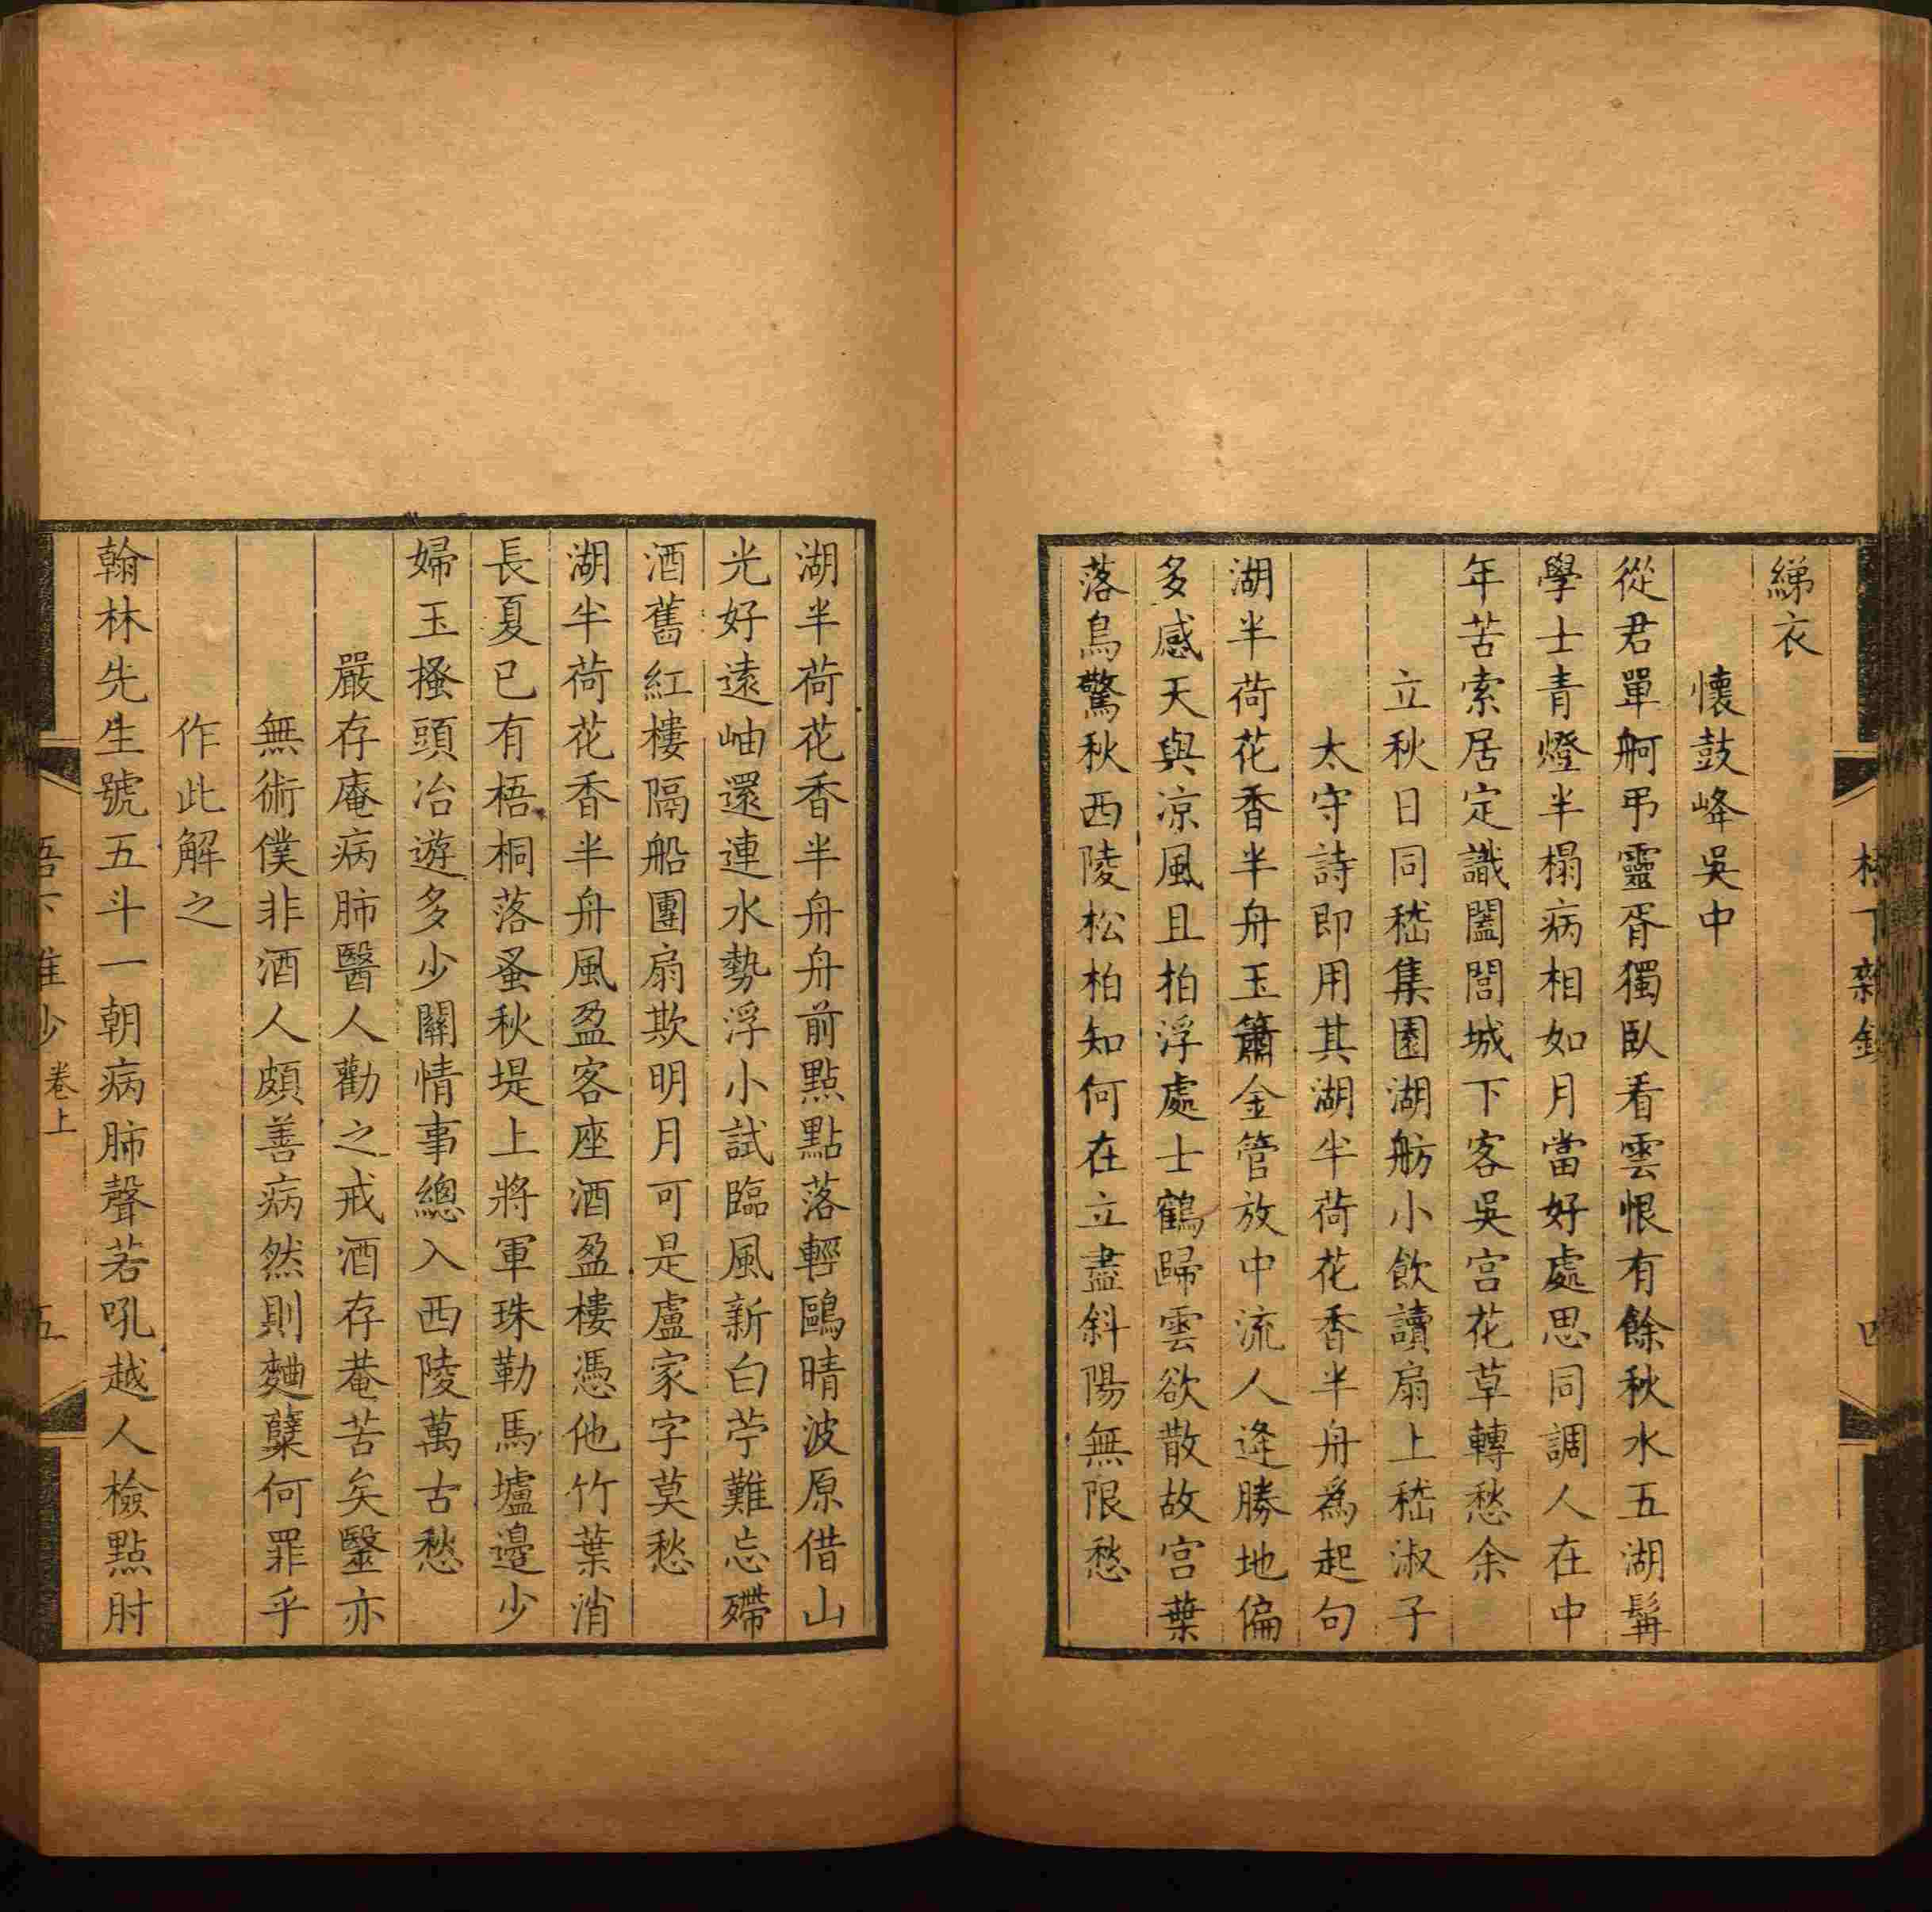 綈衣
懷鼓峰吳中
從君單舸弔靈胥獨臥看雲恨有餘秋水五湖髯
學士青燈半榻病相如月當好處思同調人在中
年苦索居定識闔閭城下客吳宮花草轉愁余
立秋日同嵇集園湖舫小飲讀扇上嵇淑子
太守詩即用其湖半荷花香半舟為起句
湖半荷花香半舟玉簫金管放中流人逢勝地偏
多感天與涼風且拍浮處士鶴歸雲欲散故宮葉
落鳥驚秋西陵松柏知何在立盡斜陽無限愁
四
湖半荷花香半舟舟前點點落輕鷗晴波原借山
光好遠岫還連水勢浮小試臨風新白苧難忘殢
酒舊紅樓隔船團扇欺明月可是盧家字莫愁
湖半荷花香半舟風盈客座酒盈樓憑他竹葉消
長夏已有梧桐落蚤秋堤上將軍珠勒馬壚邊少
婦玉搔頭冶遊多少關情事總入西陵萬古愁
嚴存庵病肺醫人勸之戒酒存菴苦矣醫亦
無術僕非酒人頗善病然則麯糵何罪乎
作此解之
翰林先生號五斗一朝病肺聲若吼越人檢點肘
卷上
五